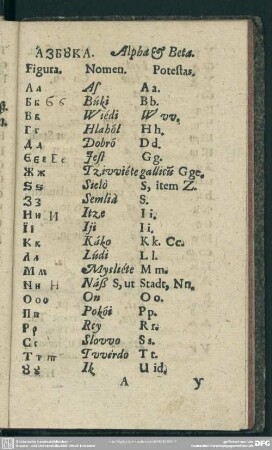 АЗБꙊКА. Alpha & Beta.
Figura. Nomen. Potestas.
Аа Aſ Aa.
Бб Búki Bb.
Вв Wiédi W vv.
Гг Hlahòl Hh.
Дд Dobrò Dd.
Єє Jeſt Gg.
Жж Tzivviéte gallicũ Gge.
Ѕѕ Sielò S, item Z.
Зз Semlià S.
Ни И Itze Ii.
Її Iji Ii.
Кк Káko Kk. Cc.
Лл Lúdi Ll.
Мм Myslićte Mm.
Нн N Náß S, ut Stadt, Nn.
Ооо On Oo.
Пп Pokói Pp.
Рр Rty Rr.
Сс Slovvo Ss.
Тт Tvvérdo Tt.
Ꙋꙋ Ik U id.
A y